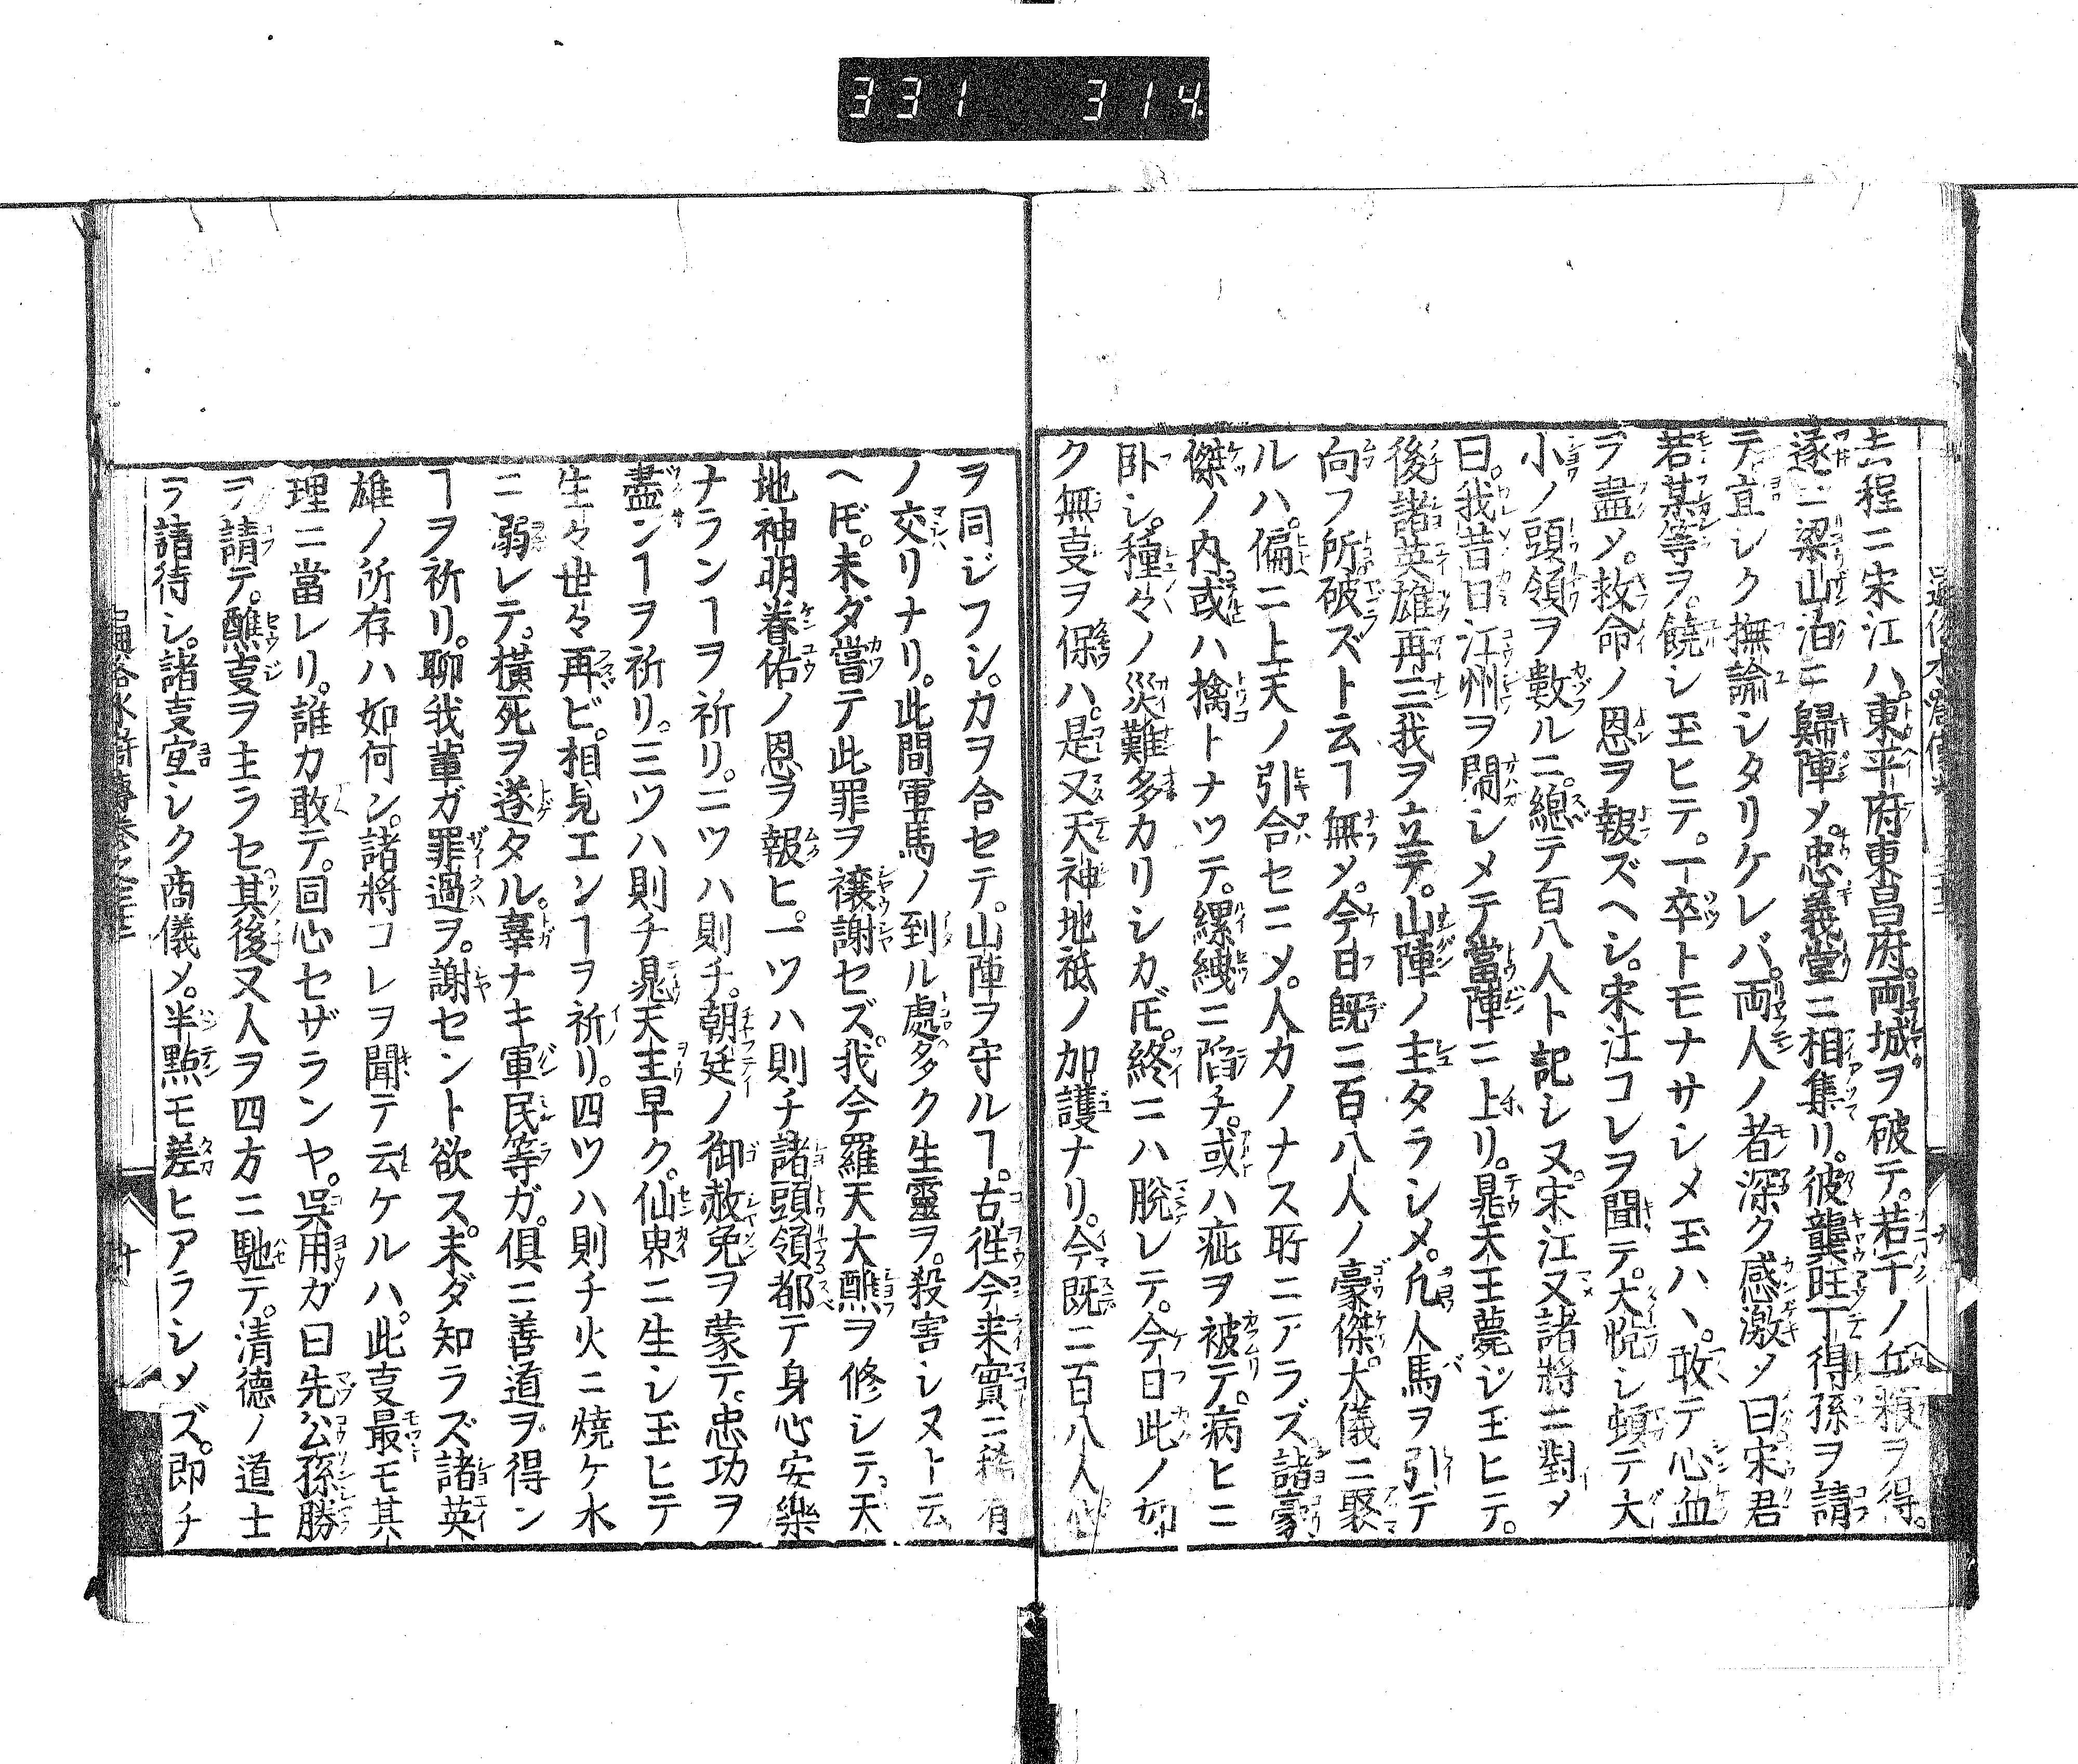 331 314
去程ニ宋江ハ。東平府東昌府。両城ヲ破テ。若干ノ兵粮ヲ得。
遂ニ梁山泊ニ歸陣メ。忠義堂ニ相集リ。彼龔旺丁得孫ヲ請
テ宜シク撫諭シタリケレバ。両人ノ者深ク感激ノ曰宋君
若某等ヲ。饒シ玉ヒテ。一卒トモナサシメ玉ハヽ。敢テ心血
ヲ盡メ。救命ノ恩ヲ報ズヘシ。宋江コレヲ聞テ。大悦シ頓テ大
小ノ頭領ヲ數ルニ。總テ百八人ト記シヌ。宋江又諸將ニ對メ
曰。我昔日江州ヲ閙シメテ當陣ニ上リ。晁天王薨ジ玉ヒテ。
後諸英雄再三我ヲ立テ。山陣ノ主タラシメ。凢人馬ヲ引テ
向フ所破ズト云ヿ無メ。今日既ニ百八人ノ豪傑。大儀ニ聚
ルハ。偏ニ上天ノ引合セニメ。人力ノナス所ニアラズ諸豪
傑ノ内。或ハ擒トナツテ。縲絏ニ陷チ。或ハ疵ヲ被テ。病ヒニ
卧シ。種々ノ災難多カリシカ𪜈。終ニハ脫レテ。今日此ノ如
ク無叓ヲ保ハ。是又天神地祗ノ加護ナリ。今既ニ百八人心
ヲ同ジフシ。力ヲ合セテ。山陣ヲ守ルヿ。古徃今来實ニ稀有
ノ交リナリ。此間軍馬ノ到ル處多ク生靈ヲ。殺害シヌト云
ヘ𪜈。未ダ嘗テ此罪ヲ禳謝セズ。我今羅天大醮ヲ修シテ。天
地神明眷佑ノ恩ヲ報ヒ。一ツハ則チ諸頭領都テ身心安樂
ナランヿヲ祈リ。二ツハ則チ。朝廷ノ御赦免ヲ蒙テ。忠功ヲ
盡ンヿヲ祈リ。三ツハ則チ晁天主早ク。仙界ニ生シ玉ヒテ
生々世々再ビ。相見エンヿヲ祈リ。四ツハ則チ火ニ燒ケ水
ニ弱レテ。橫死ヲ遂タル。辜ナキ軍民等ガ。俱ニ善道ヲ得ン
ヿヲ祈リ。聊我輩ガ罪過ヲ。謝セント欲ス。未ダ知ラズ諸英
雄ノ所存ハ如何ン。諸將コレヲ聞テ云ケルハ。此叓最モ其
理ニ當レリ。誰カ敢テ。同心セザランヤ。呉用ガ曰先公孫勝
ヲ請テ。醮叓ヲ主ラセ其後又人ヲ四方ニ馳テ。清德ノ道士
ヲ請待シ。諸叓宜シク商儀メ。半點モ差ヒアラシメズ。即チ